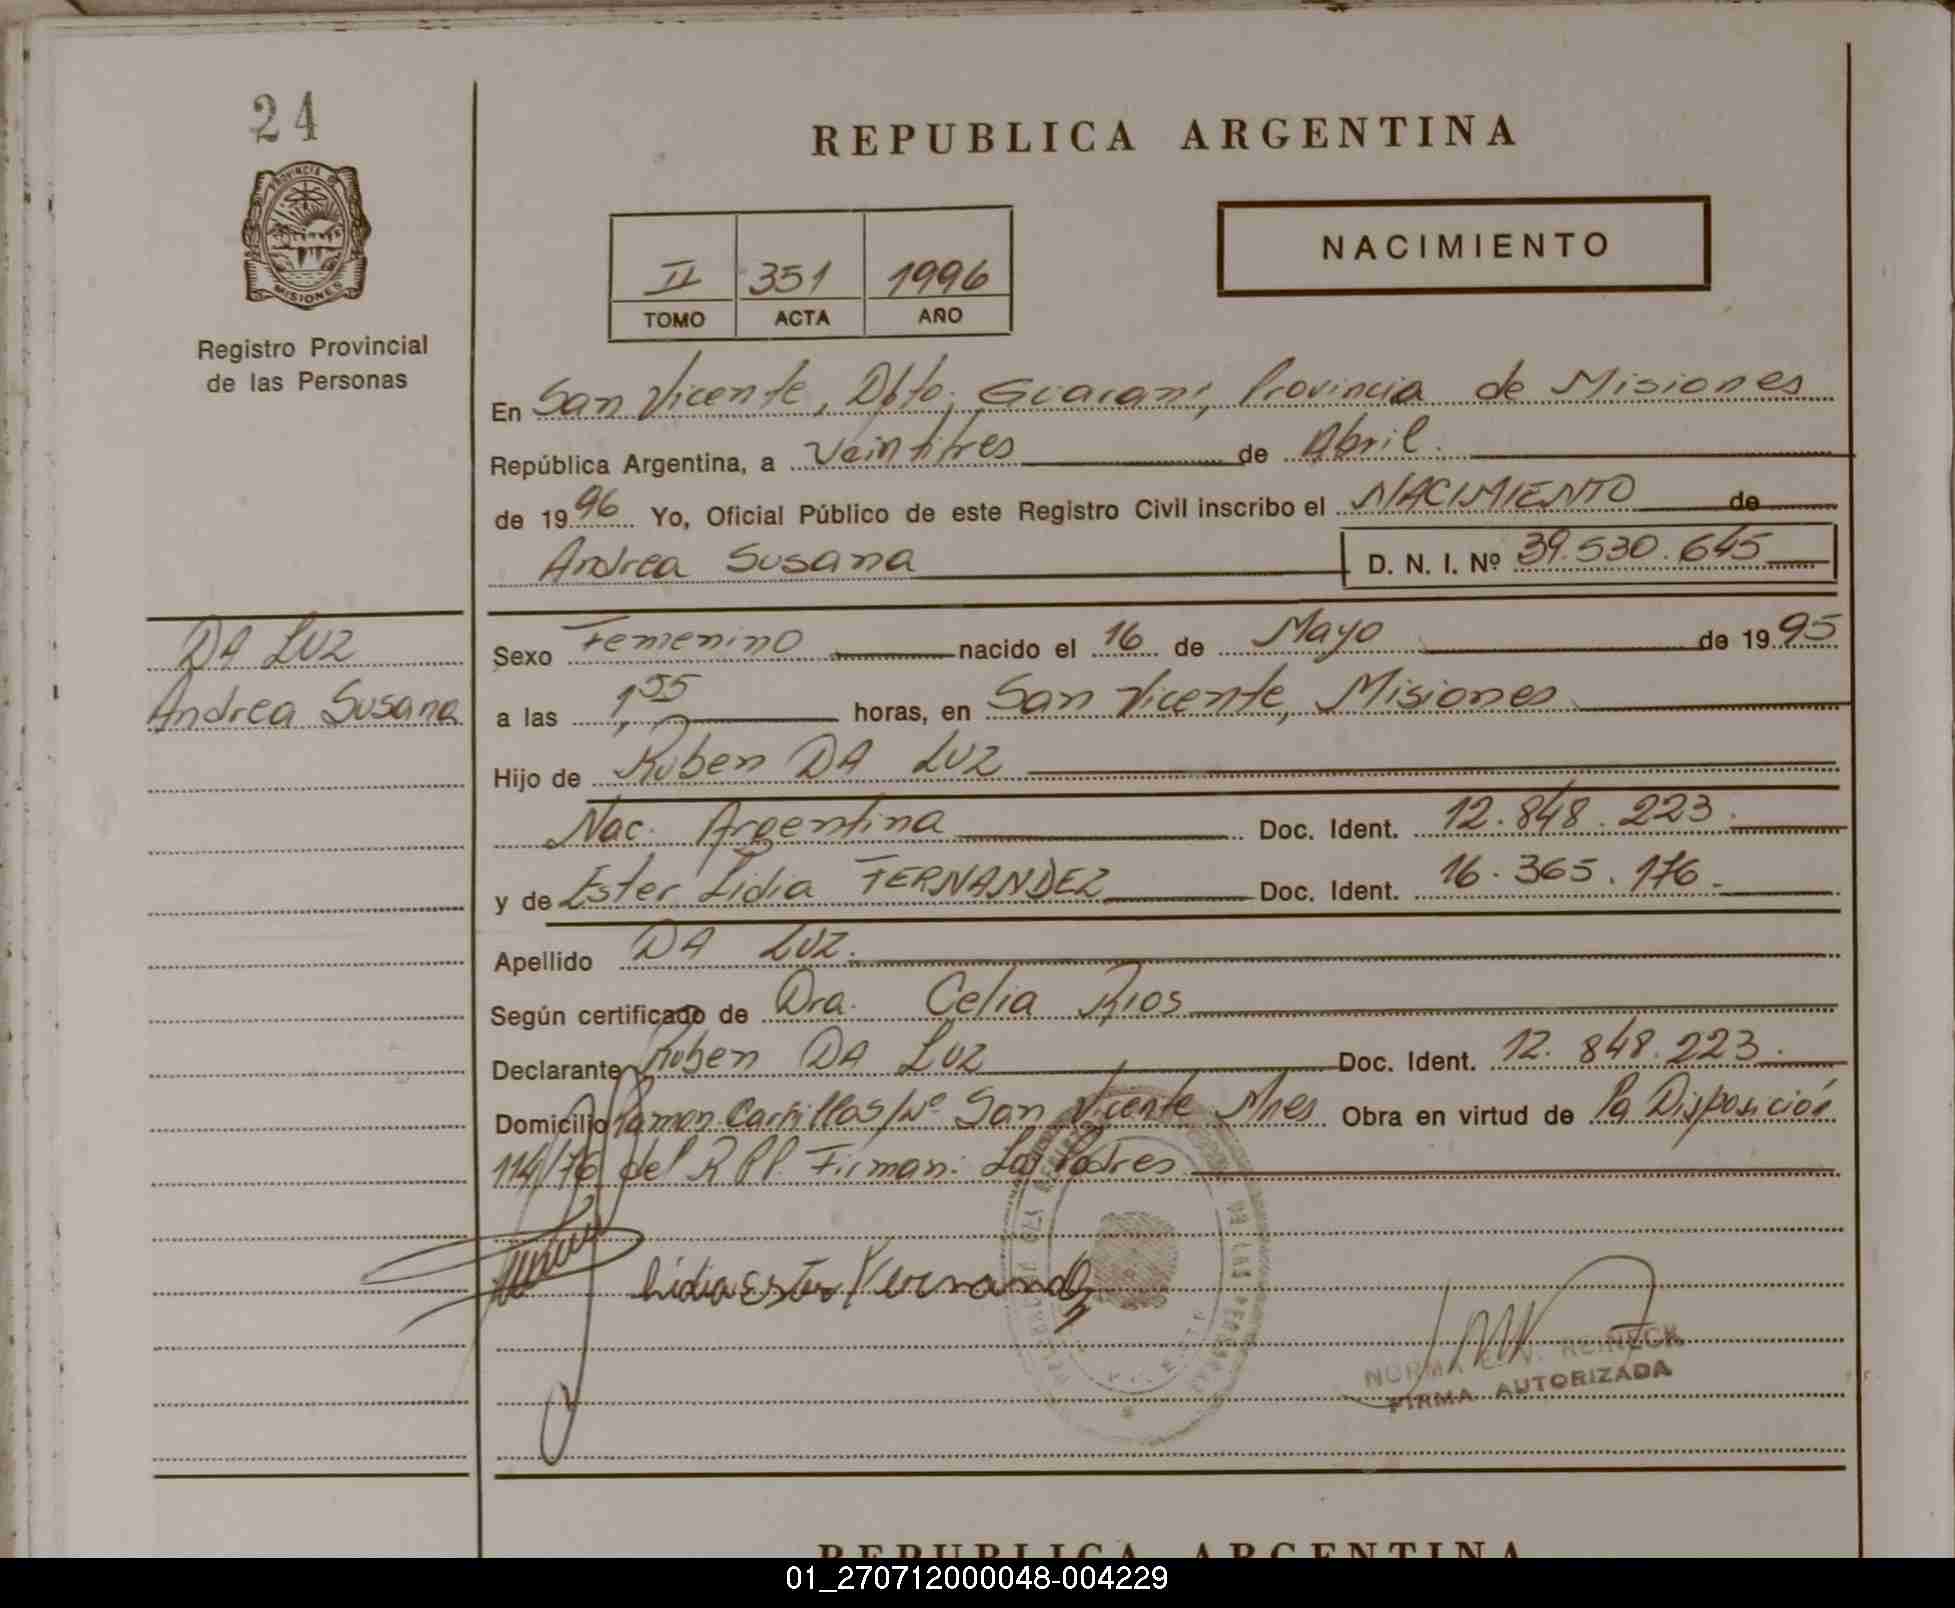 24
PROVINCIA DE
MISIONES
Registro Provincial
de las Personas
REPUBLICA ARGENTINA
II 351 1996
TOMO ACTA AÑO
NACIMIENTO
En San Vicente, Dpto, Guarani, Provincia de Misiones
República Argentina, a Veintitres de Abril.
de 1996 Yo, Oficial Público de este Registro Civil inscribo el NACIMIENTO de
Andrea Susana D. N. I. Nº 39.530.645
DA LUZ
Andrea Susana
Sexo Femenino nacido el 16 de Mayo de 1995
a las 1,55 horas, en San Vicente, Misiones
Hijo de Ruben DA LUZ
Nac. Argentina Doc. Ident. 12.848.223.
y de Ester Lidia FERNANDEZ Doc. Ident. 16.365.176.
Apellido DA LUZ.
Según certificado de Dra. Celia Rios
Declarante Ruben DA LUZ Doc. Ident. 12.848.223.
Domicilio Ramon Carrillo s/Nº San Vicente Mnes Obra en virtud de la Disposición
114/76 del R.P.P. Firman: Los Padres
Lidia Ester Fernandez
DE LAS PERSONAS
NORMA REINECK
FIRMA AUTORIZADA
REPUBLICA ARGENTINA
01_270712000048-004229